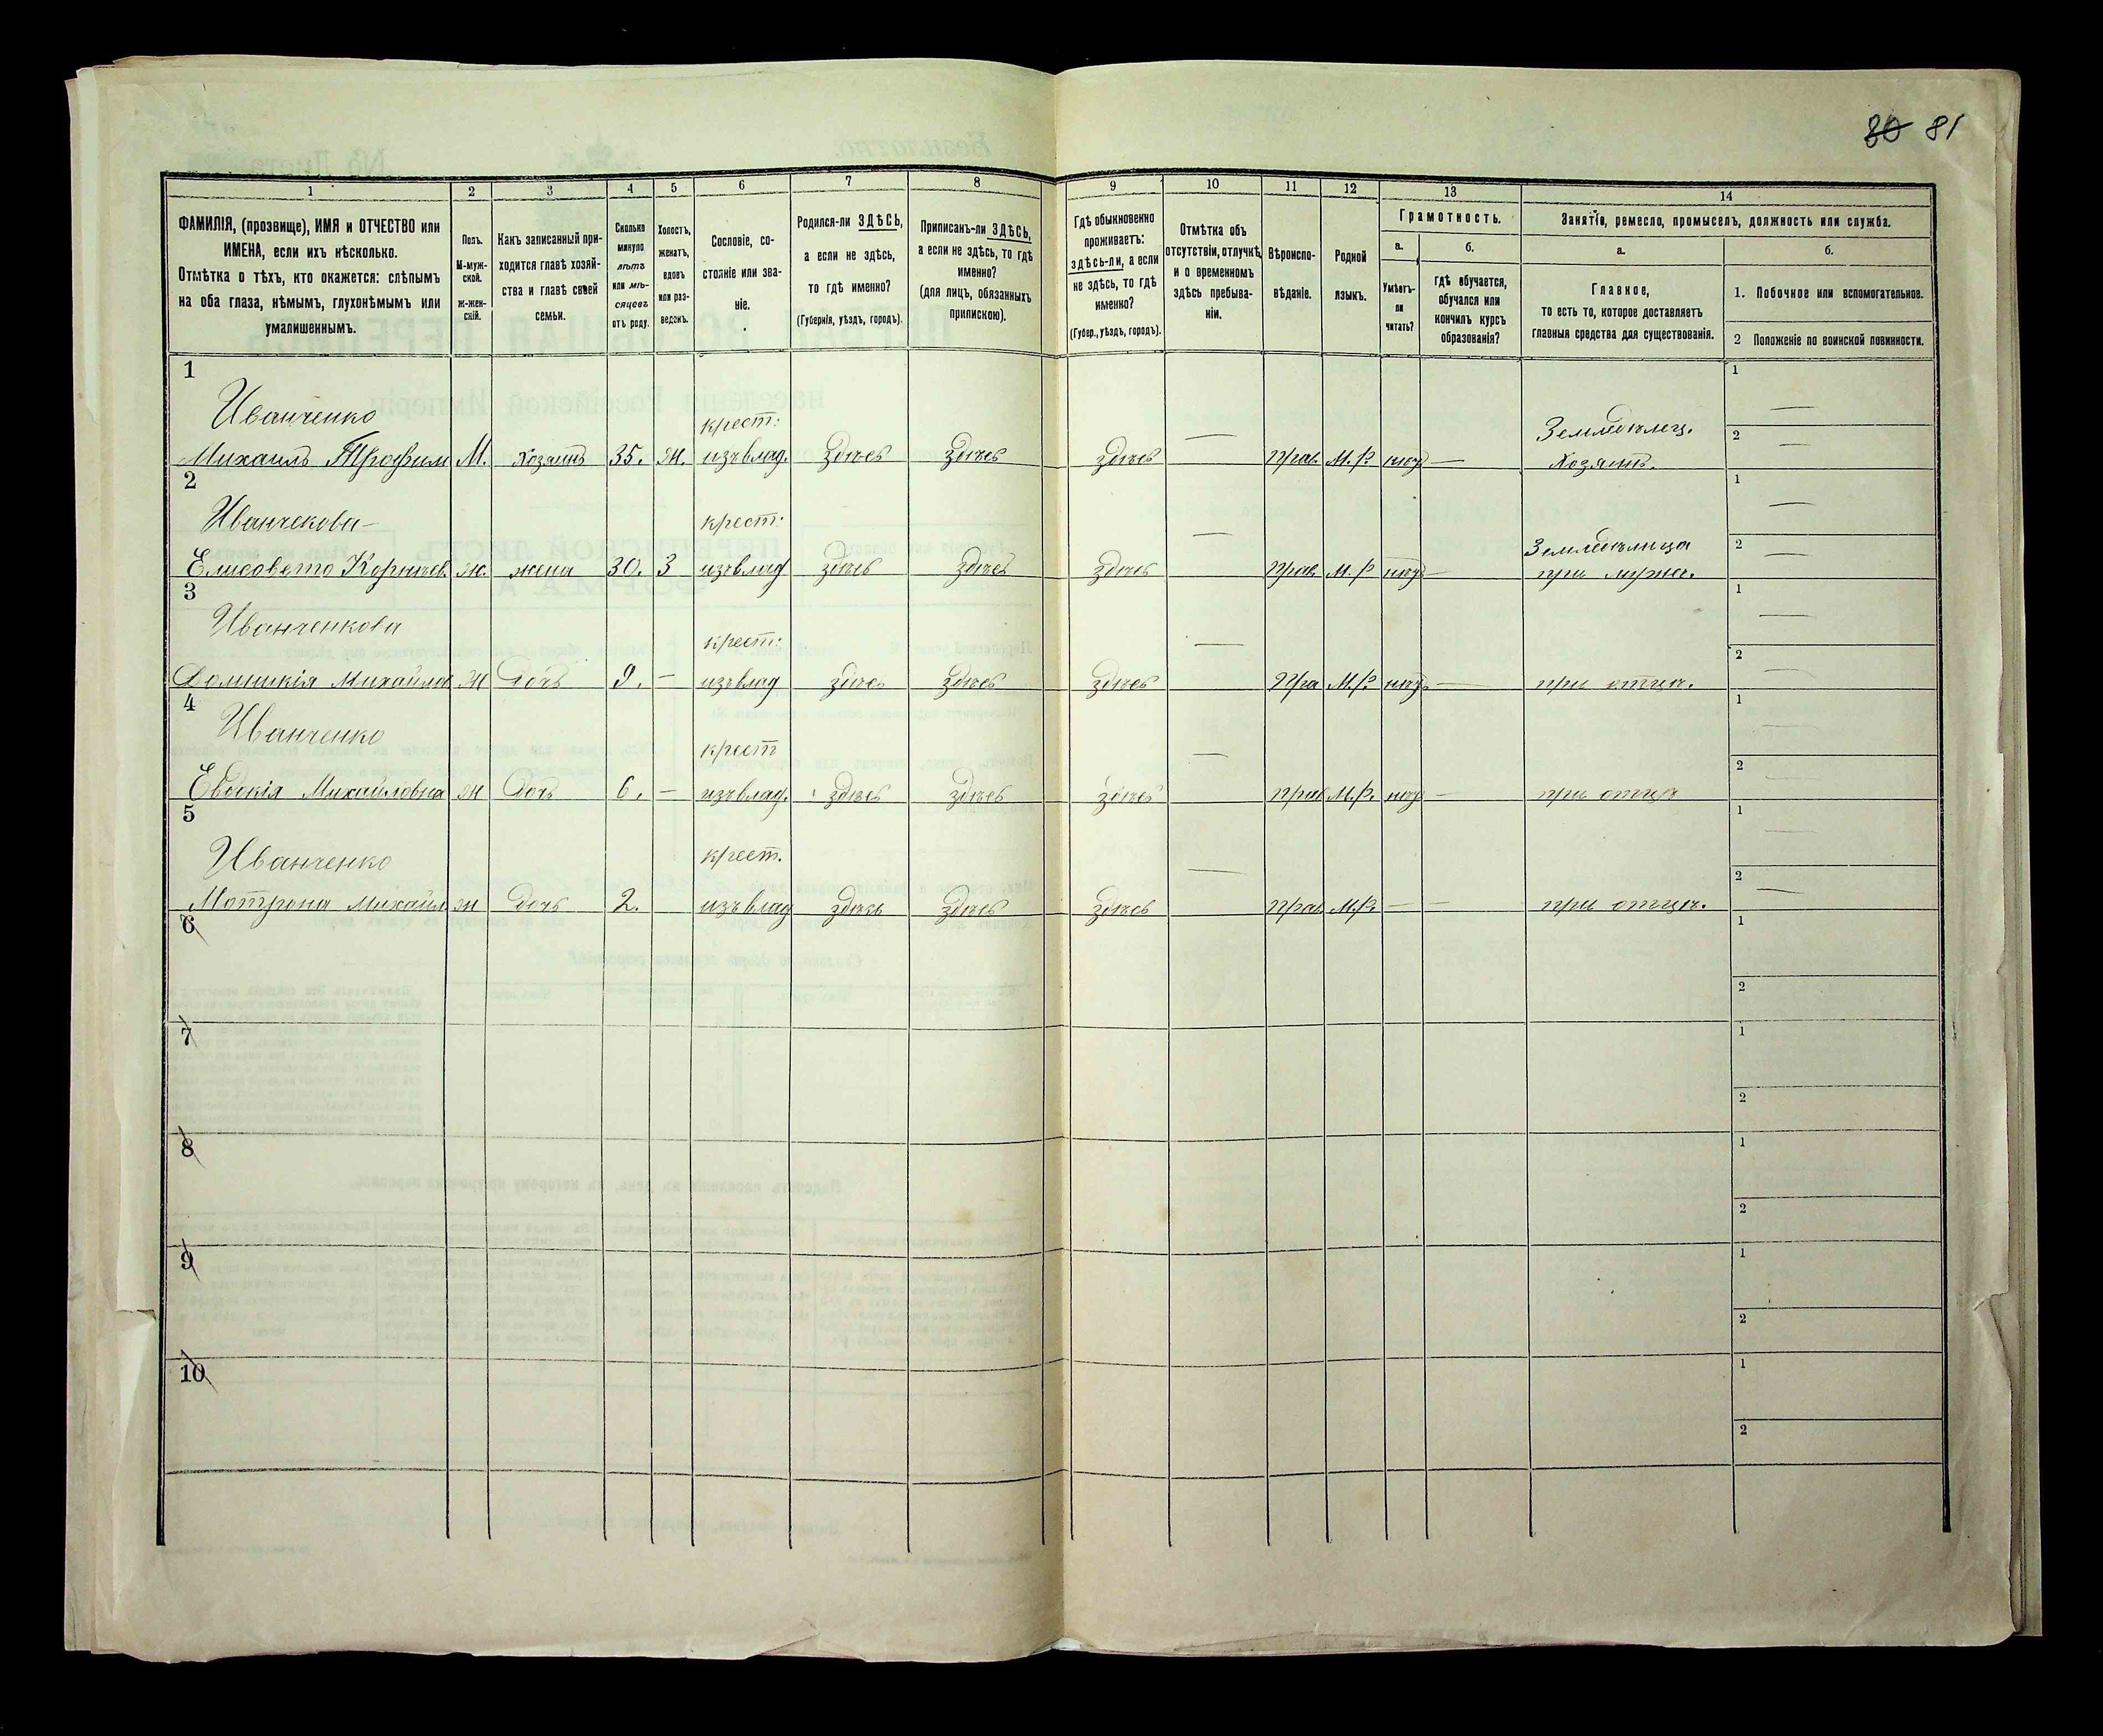 80 81
1 2 3 4 5 6 7 8 9 10 11 12 13 14
ФАМИЛІЯ, (прозвище), ИМЯ и ОТЧЕСТВО или ИМЕНА, если ихъ нѣсколько.
Отмѣтка о тѣхъ, кто окажется: слѣпымъ на оба глаза, нѣмымъ, глухонѣмымъ или умалишеннымъ.
Полъ. М-мужской. Ж-женскій.
Какъ записанный приходится главѣ хозяйства и главѣ своей семьи.
Сколько минуло лѣтъ или мѣсяцевъ отъ роду.
Холостъ, женатъ, вдовъ или разведенъ.
Сословіе, состояніе или званіе.
Родился-ли ЗДѢСЬ, а если не здѣсь, то гдѣ именно? (Губернія, уѣздъ, городъ).
Приписанъ-ли ЗДѢСЬ, а если не здѣсь, то гдѣ именно? (для лицъ, обязанныхъ припискою).
Гдѣ обыкновенно проживаетъ: здѣсь-ли, а если не здѣсь, то гдѣ именно? (Губер., уѣздъ, городъ).
Отмѣтка объ отсутствіи, отлучкѣ, и о временномъ здѣсь пребываніи.
Вѣроисповѣданіе.
Родной языкъ.
Грамотность.
а. Умѣетъ-ли читать?
б. гдѣ обучается, обучался или кончилъ курсъ образованія?
Занятіе, ремесло, промыселъ, должность или служба.
а. Главное, то есть то, которое доставляетъ главныя средства для существованія.
б.
1. Побочное или вспомогательное.
2 Положеніе по воинской повинности.
1
Иванченко крест: Земледѣлец. 1 —
Михаилъ Трофим М. хозяинъ 35. Ж. изъ влад. здѣсь здѣсь здѣсь — прав. М.Р. нѣт — Хозяинъ. 2 —
2
Иванчекова крест: Земледѣлица 1 —
Елисовета Корнѣев. Ж. жена 30. З изъ влад здѣсь здѣсь здѣсь — прав. М.Р нѣт — при мужѣ. 2 —
3
Иванченкова крест: 1 —
Домникія Михайлов Ж Дочь 9. — изъ влад здѣсь здѣсь здѣсь — Пра М.Р. нѣт — при отцѣ. 2 —
4
Иванченко крест 1 —
Евдокія Михайловна Ж Дочь 6. — изъ влад. здѣсь здѣсь здѣсь — прав М.Р. нѣт — при отцѣ 2 —
5
Иванченко крест. 1 —
Мотрона Михайл Ж Дочь 2. изъ влад здѣсь здѣсь здѣсь — прав. М.Р. — — при отцѣ. 2 —
6 1
2
7 1
2
8 1
2
9 1
2
10 1
2